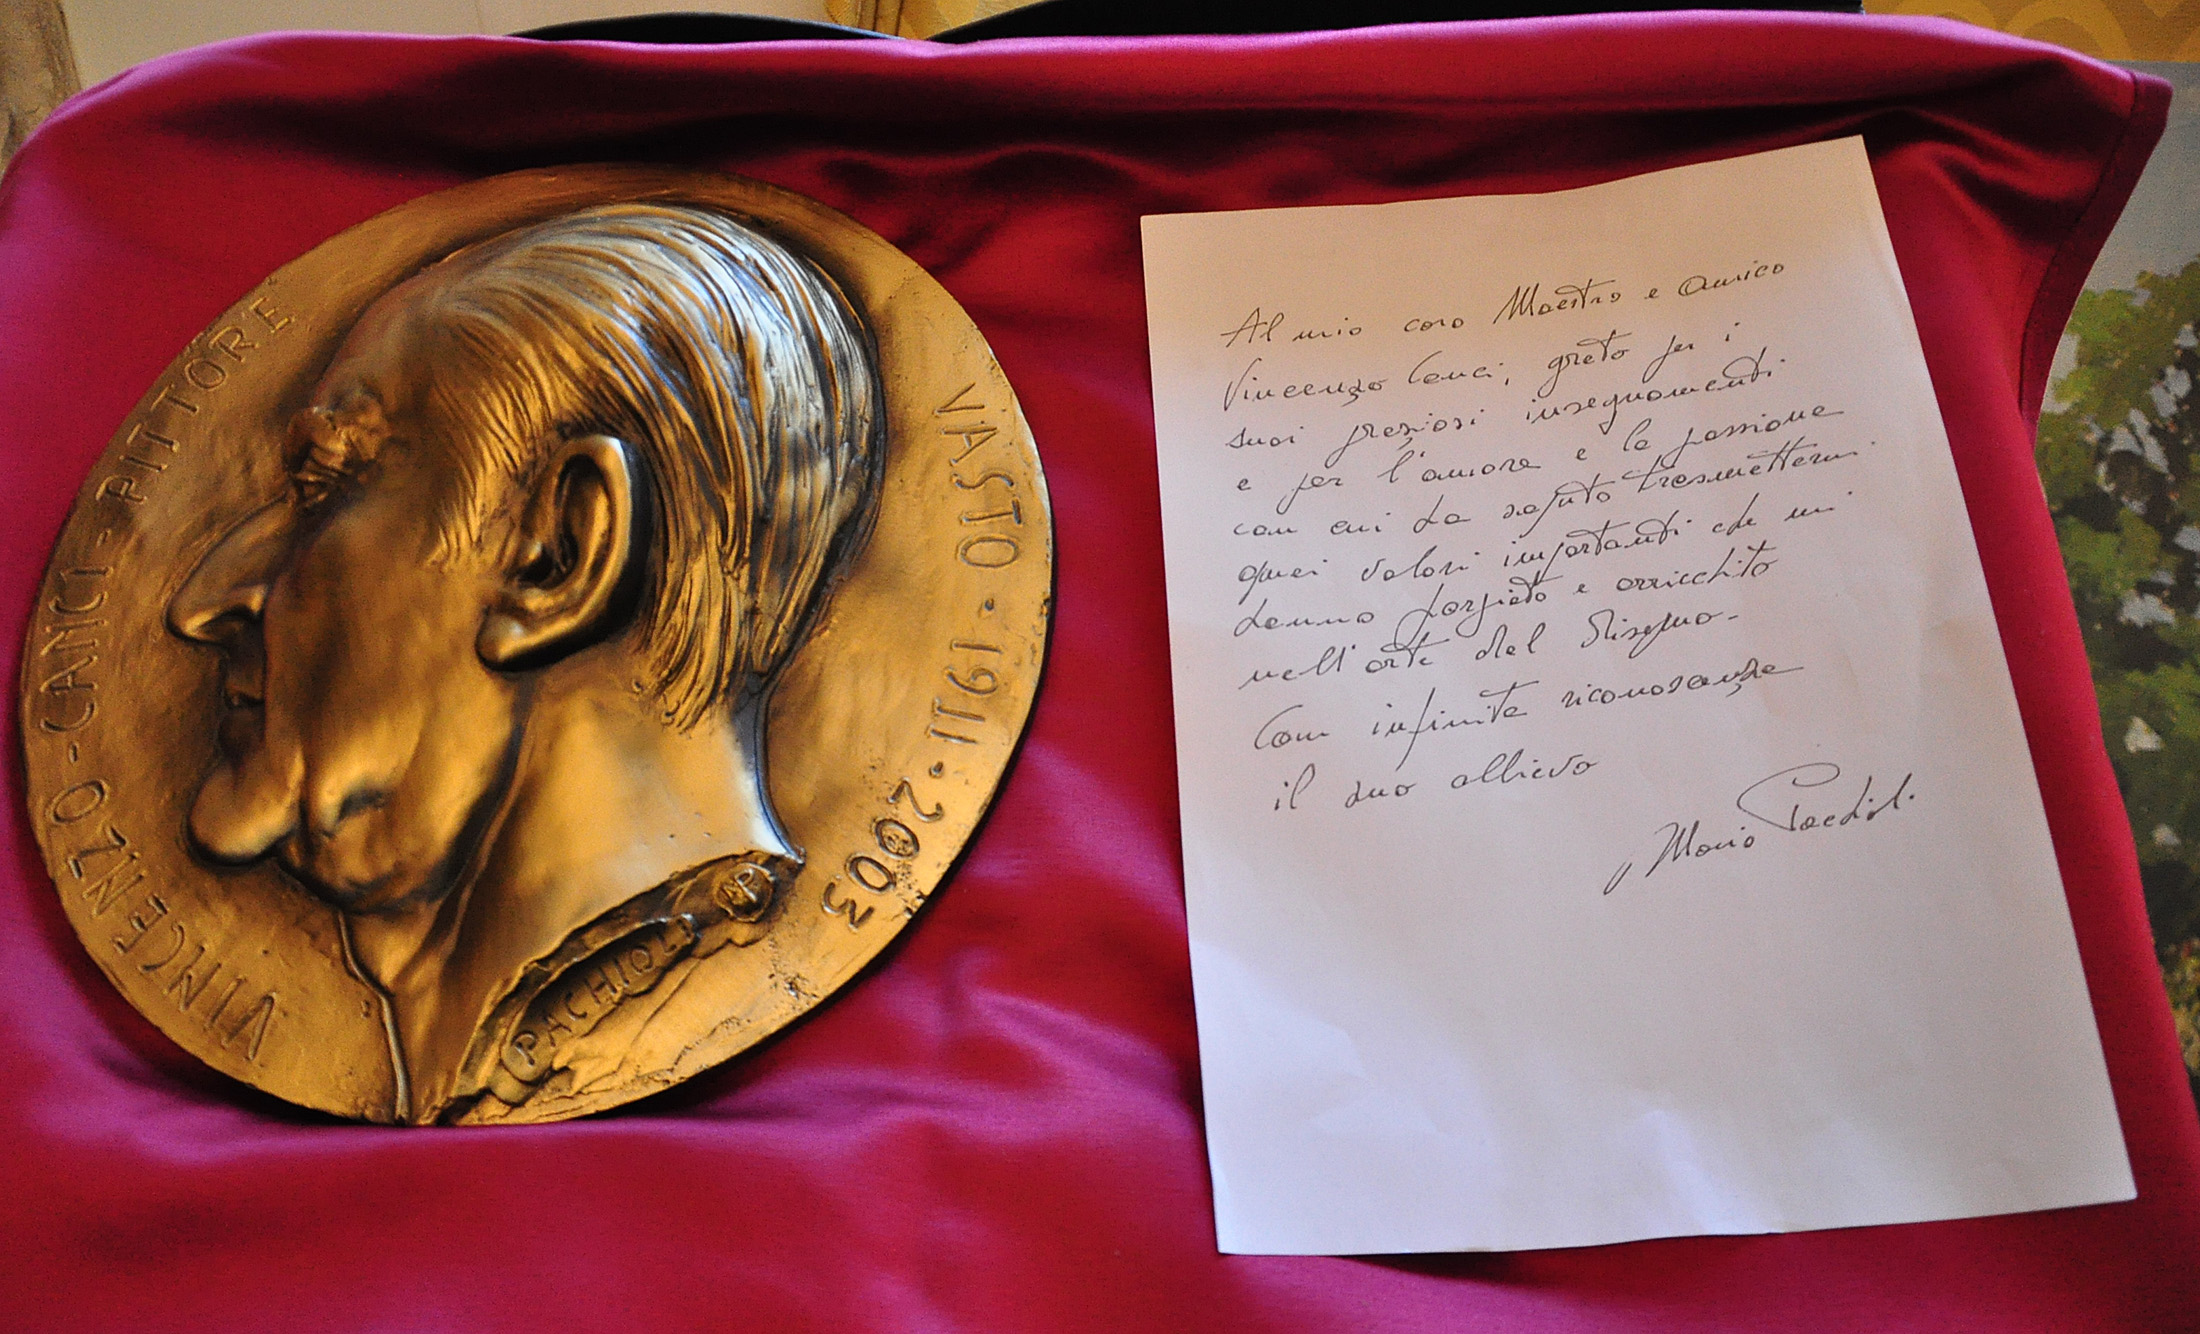 VINCENZO - CANCI - PITTORE
VASTO • 1911 • 2003
PACHIOLI
MP
Al mio caro Maestro e Amico
Vincenzo Canci, grato per i
suoi preziosi insegnamenti
e per l'amore e la passione
con cui ha saputo trasmettermi
quei valori importanti che mi
hanno forgiato e arricchito
nell'arte del Disegno-
Con infinita riconoscenza
il suo allievo
Mario